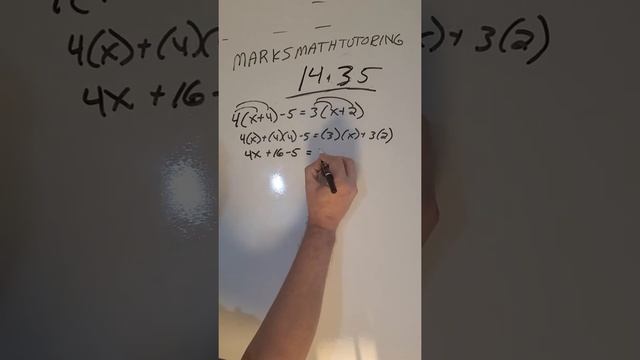 MARKSMATHTUTORING
14.35
4(x+4)-5=3(x+2)
4(x)+(4)(4)-5=(3)(x)+3(2)
4x+16-5=